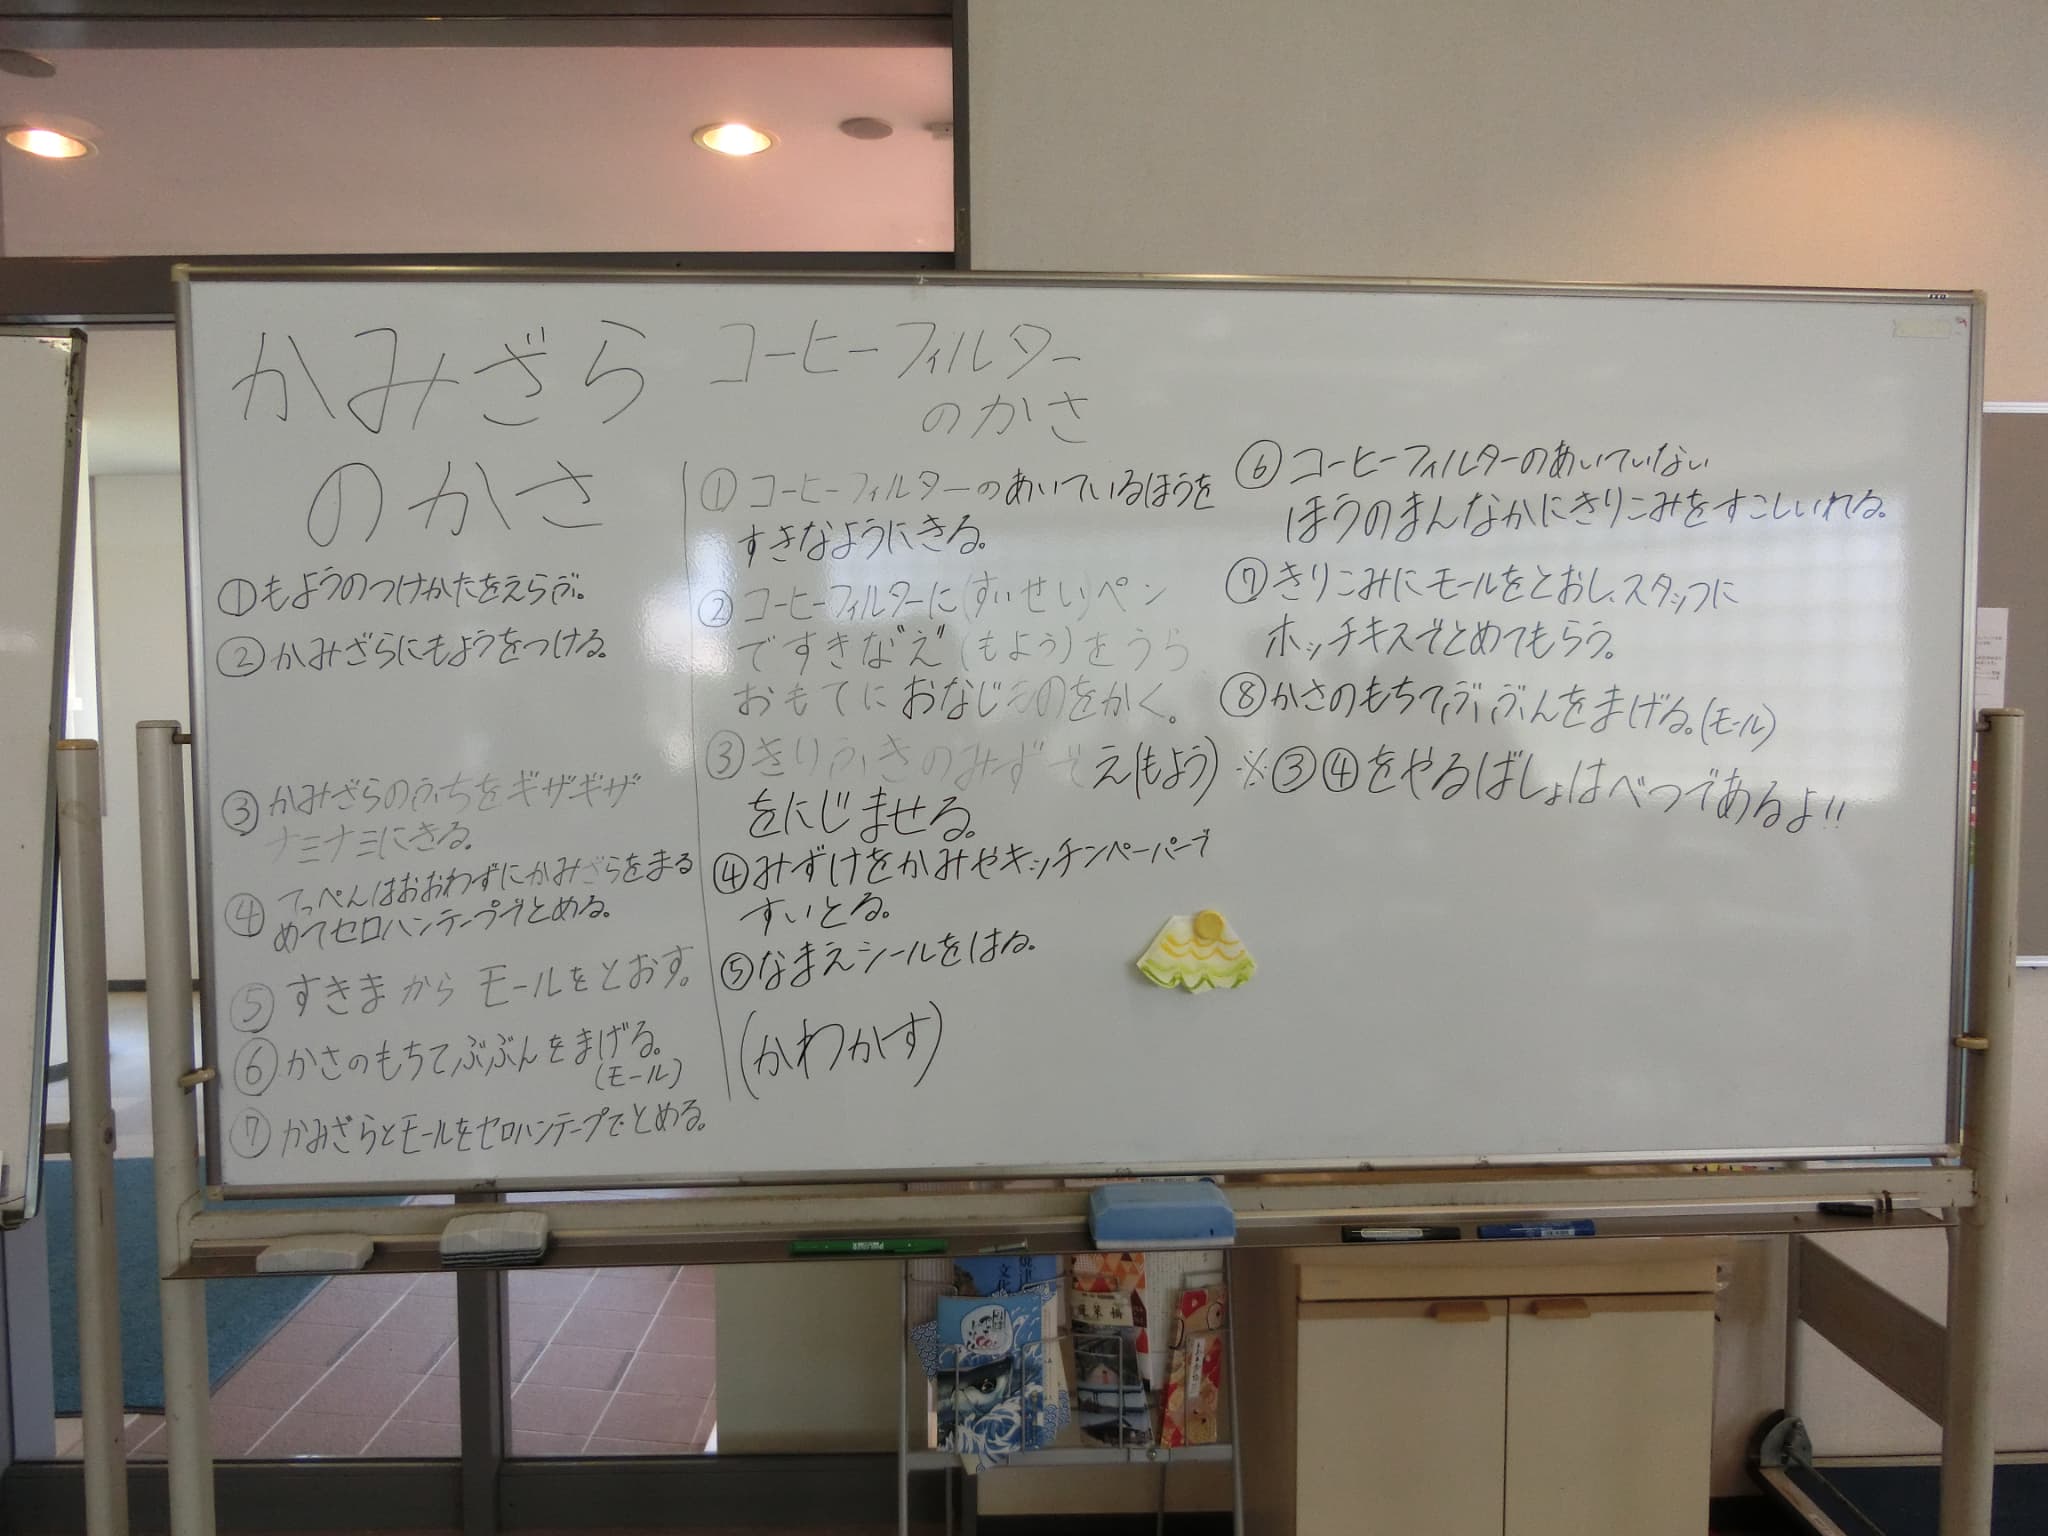 かみざら
のかさ
①もようのつけかたをえらぶ。
②かみざらにもようをつける。
③かみざらのふちをギザギザ
ナミナミにきる。
④てっぺんはおおわずにかみざらをまる
めてセロハンテープでとめる。
⑤すきまからモールをとおす。
⑥かさのもちてぶぶんをまげる。
(モール)
⑦かみざらとモールをセロハンテープでとめる。
コーヒーフィルター
のかさ
①コーヒーフィルターのあいているほうを
すきなようにきる。
②コーヒーフィルターに(すいせい)ペン
ですきな"え"(もよう)をうら
おもてにおなじものをかく。
③きりふきのみずでえ(もよう)
をにじませる。
④みずけをかみやキッチンペーパーで
すいとる。
⑤なまえシールをはる。
(かわかす)
⑥コーヒーフィルターのあいていない
ほうのまんなかにきりこみをすこしいれる。
⑦きりこみにモールをとおし、スタッフに
ホッチキスでとめてもらう。
⑧かさのもちてぶぶんをまげる。(モール)
※③④をやるばしょはべつであるよ!!